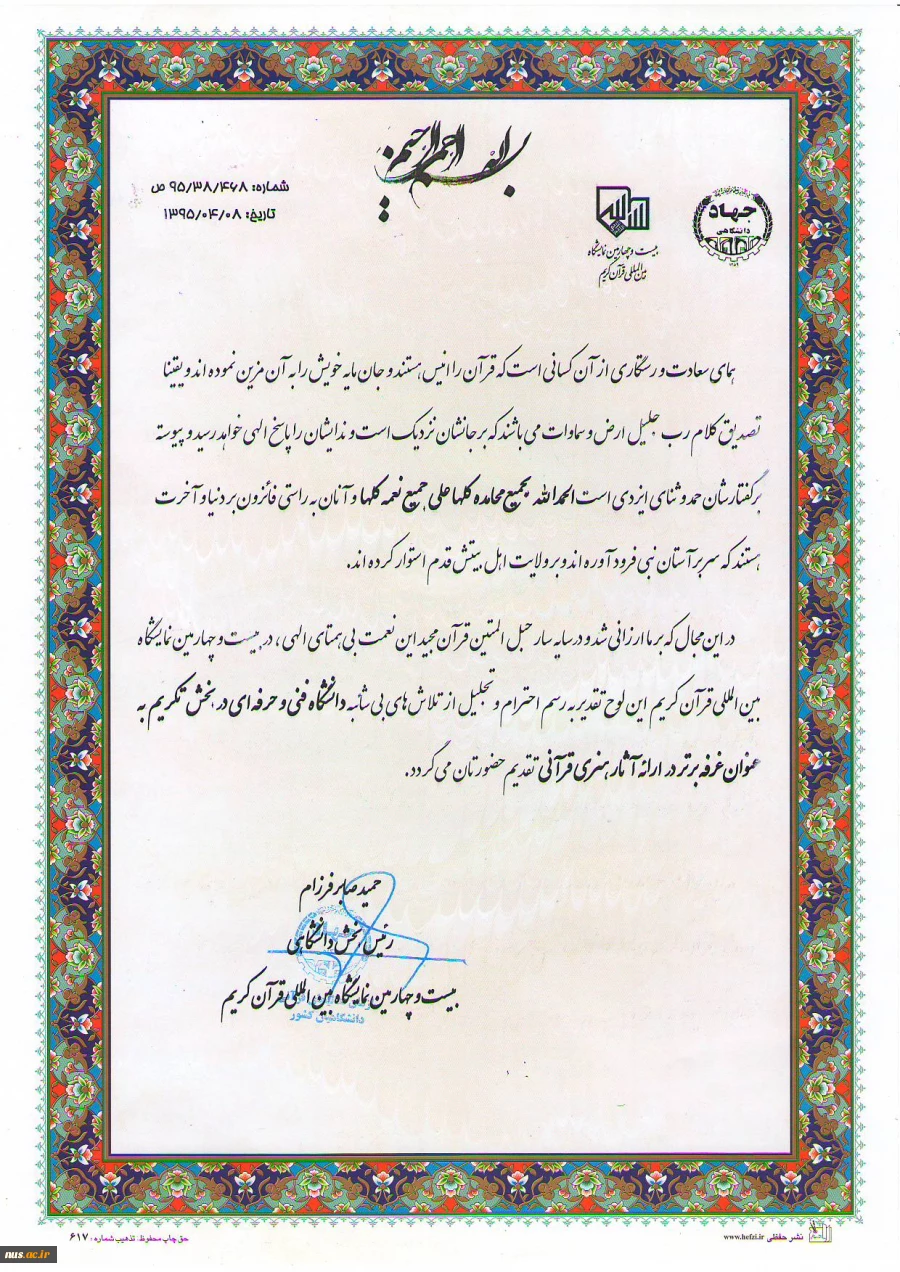 بسم الله الرحمن الرحیم
شماره: ۹۵/۳۸/۴۶۸ ص
تاریخ: ۱۳۹۵/۰۴/۰۸
جهاد
دانشگاهی
بیست و چهارمین نمایشگاه
بین المللی قرآن کریم
همای سعادت و رستگاری از آن کسانی است که قرآن را انیس هستند و جان مایه خویش را به آن مزین نموده اند و یقینا
تصدیق کلام رب جلیل ارض و سماوات می باشند که بر جانشان نزدیک است و ندایشان را پاسخ الهی خواهد رسید و پیوسته
بر گفتارشان حمد و ثنای ایزدی است الحمدالله بجمیع محامده کلها علی جمیع نعمه کلها و آنان به راستی فائزون بر دنیا و آخرت
هستند که سر بر آستان نبی فرود آورده اند و بر ولایت اهل بیتش قدم استوار کرده اند.
در این مجال که بر ما ارزانی شد و در سایه سار حبل المتین قرآن مجید این نعمت بی همتای الهی، در بیست و چهارمین نمایشگاه
بین المللی قرآن کریم این لوح تقدیر به رسم احترام و تجلیل از تلاش های بی شائبه دانشگاه فنی و حرفه ای در بخش تکریم به
عنوان غرفه برتر در ارائه آثار هنری قرآنی تقدیم حضورتان می گردد.
حمید صابر فرزام
رئیس بخش دانشگاهی
بیست و چهارمین نمایشگاه بین المللی قرآن کریم
دانشگاهیان کشور
نشر حفظی www.hefzi.ir
حق چاپ محفوظ، تذهیب شماره: ۶۱۷
nus.ac.ir